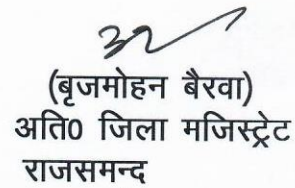 (बृजमोहन बैरवा)
अति0 जिला मजिस्ट्रेट
राजसमन्द